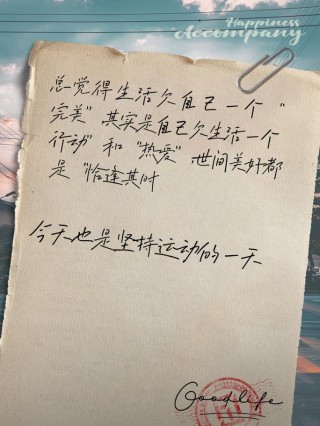 Happiness
Accompany
总觉得生活欠自己一个“
完美”其实是自己欠生活一个
行动”和“热爱”世间美好都
是“恰逢其时
今天也是坚持运动的一天
Goodlife